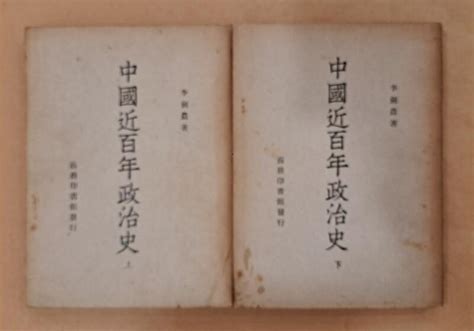 李劍農著
中國近百年政治史 上
商務印書館發行
李劍農著
中國近百年政治史 下
商務印書館發行